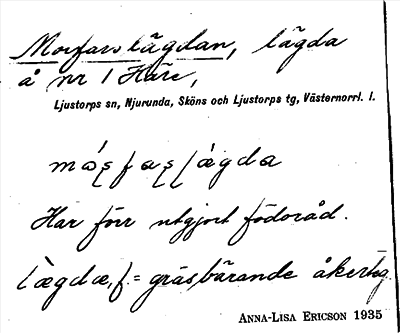 Morfarslägdan, lägda
å nr 1 Häre,
Ljustorps sn, Njurunda, Sköns och Ljustorps tg, Västernorrl. l.
Har förr utgjort födoråd.
lægdæ, f. = gräsbärande åkerteg
ANNA-LISA ERICSON 1935